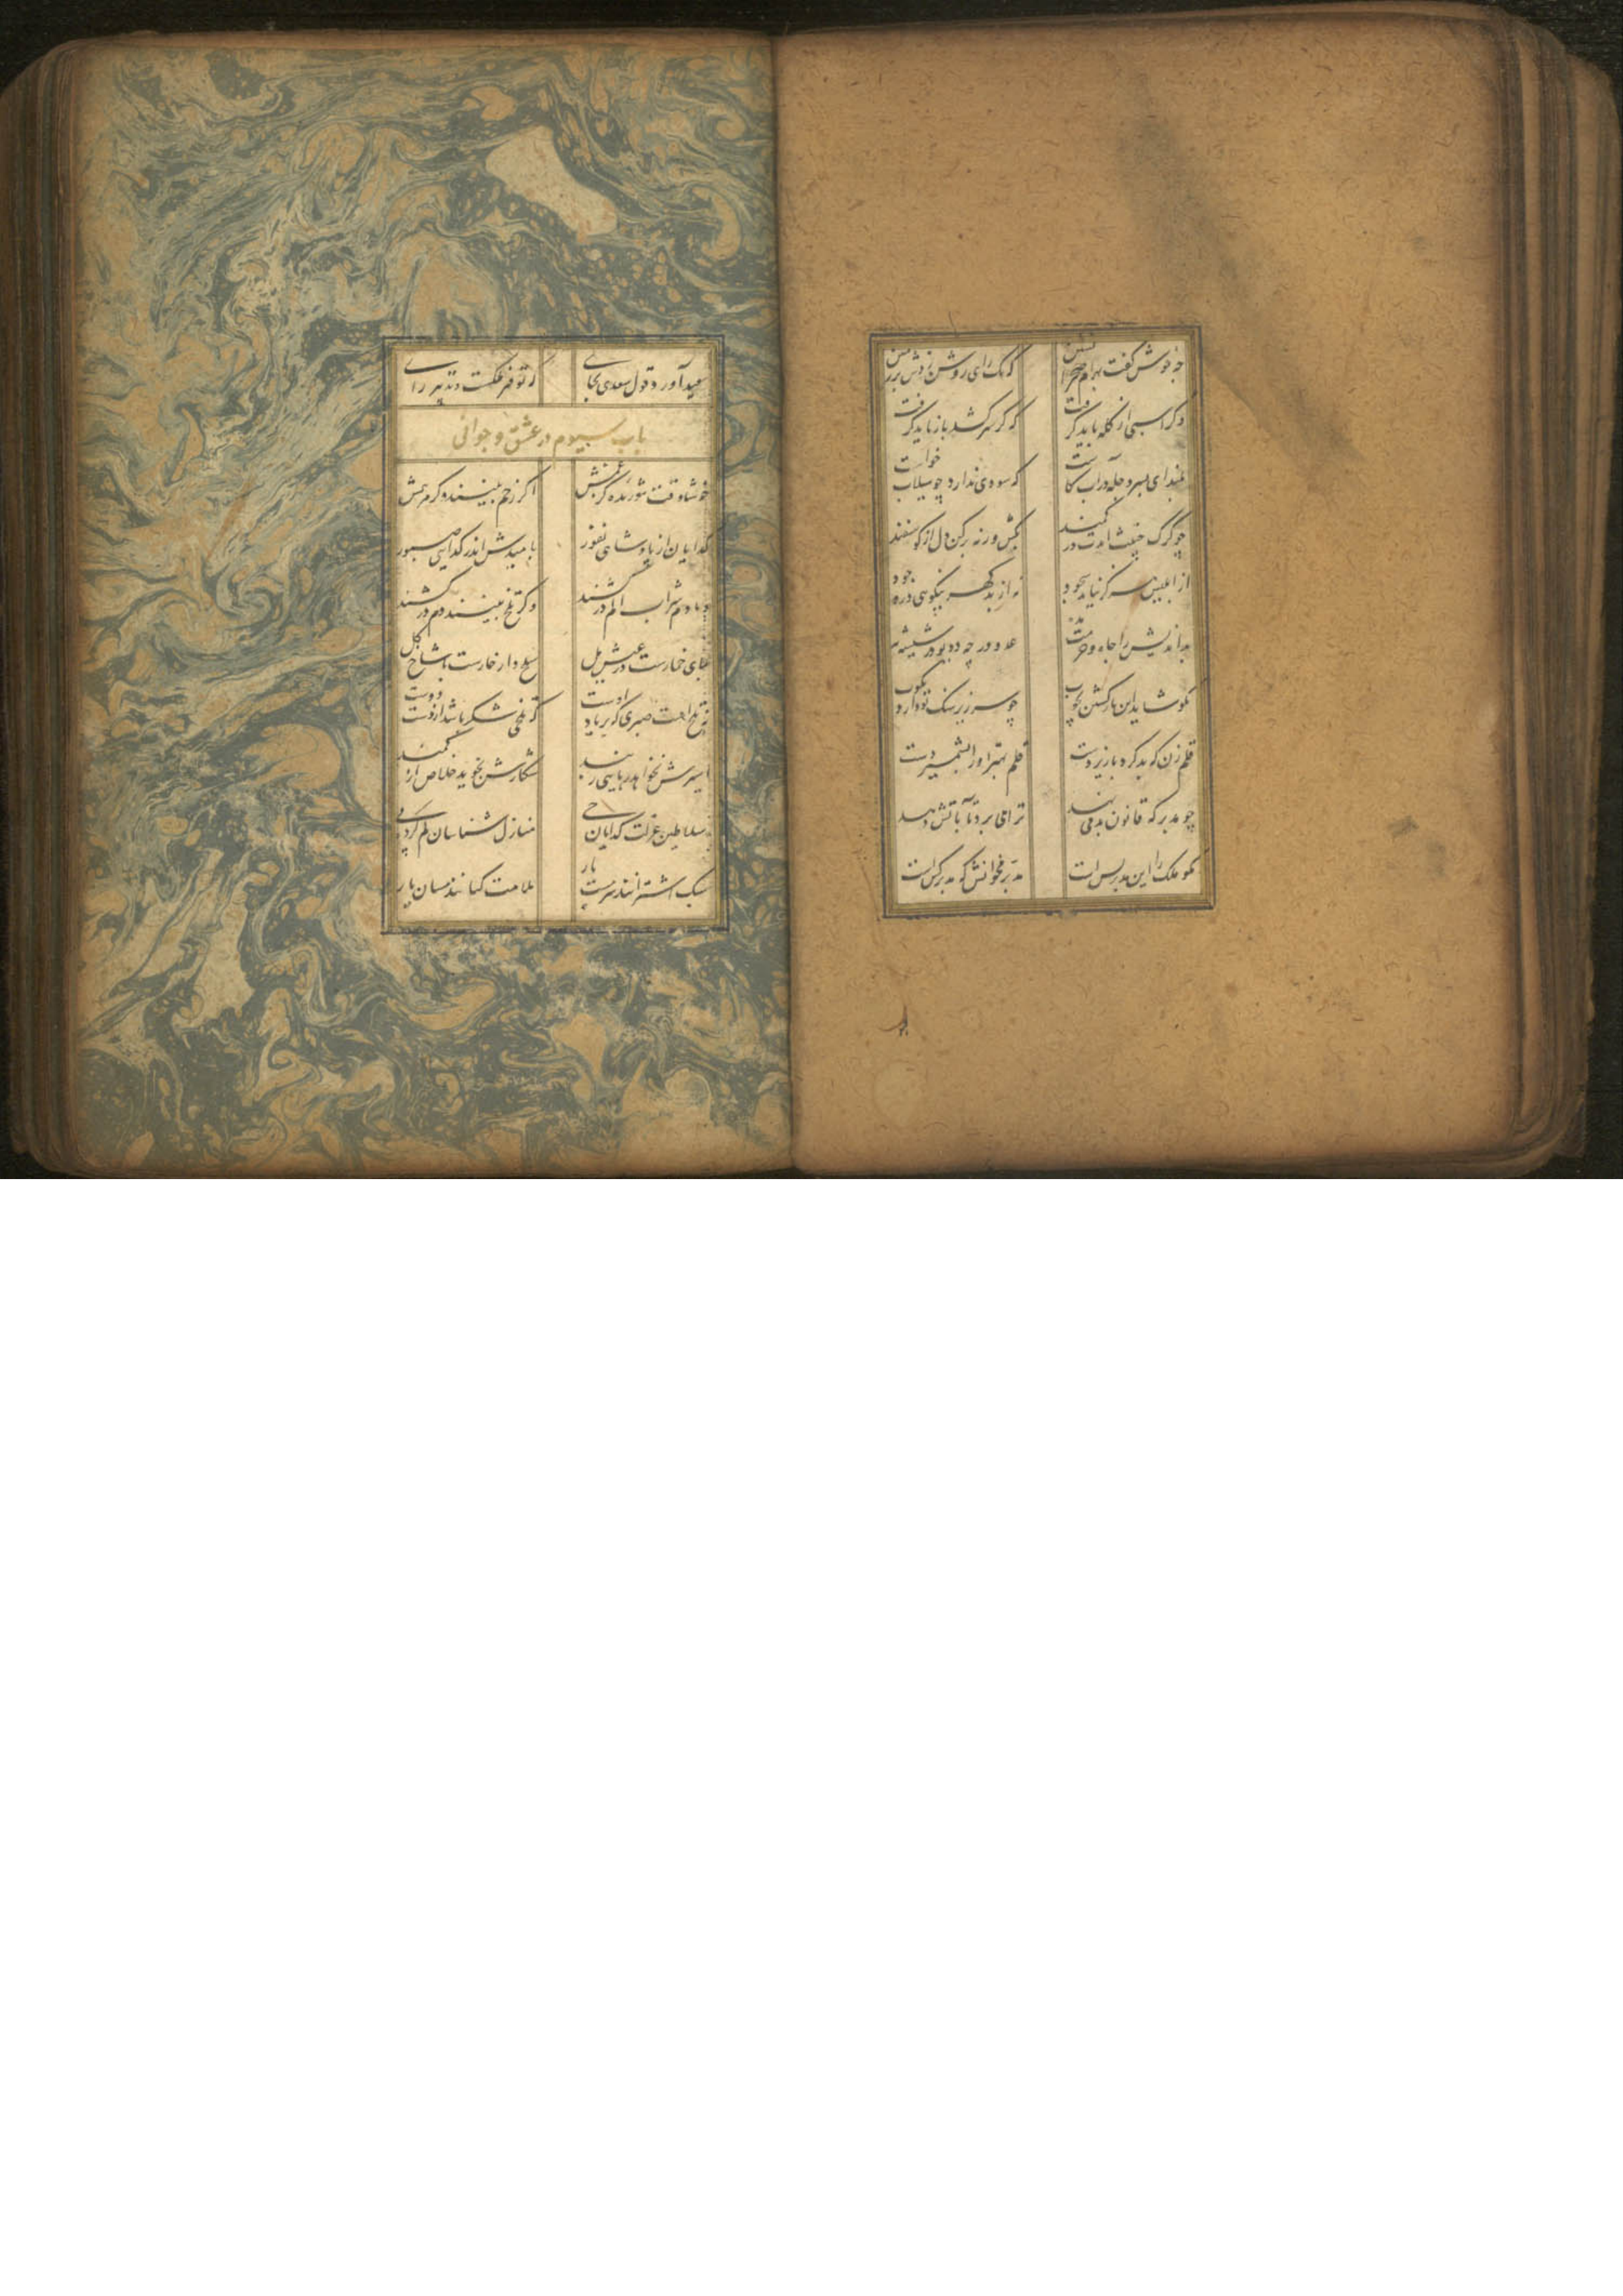 چه خوش گفت بهرام صحرا نشین که یک ران توسن زدش بر زمین
دگر اسبی از گله باید گرفت که گر سر کشد باز باید گرفت
ببند ای پسر دجله در آب کاست که سودی ندارد چو سیلاب خواست
چو گرگ خبیث آمدت در کمند بکش ورنه برکن دل از گوسفند
از ابلیس هرگز نیاید سجود نه از بدگهر نیکوئی در وجود
بداندیش را جاه و فرصت مده عدو در چه و دیو در شیشه به
مگو شاید این مار کشتن بچوب چو سر زیر سنگ تو دارد بکوب
قلم زن که بد کرد با زیردست قلم بهتر او را بشمشیر دست
چو مدبر که قانون بد می نهد ترا می برد تا بآتش دهد
مگو ملک را این مدبر بس است مدبر مخوانش که مدبر کس است
سعید آورد قول سعدی بجای که توفیر ملکست و تدبیر رای
باب سیوم در عشق و جوانی
خوشا وقت شوریدگان غمش اگر زخم بینند و گر مرهمش
گدایان از پادشاهی نفور بامیدش اندر گدایی صبور
دمادم شراب الم درکشند وگر تلخ بینند دم درکشند
بلای خمارست در عیش مل سلحدار خارست با شاخ گل
نه تلخست صبری که بر یاد اوست که تلخی شکر باشد از دست دوست
اسیرش نخواهد رهایی ز بند شکارش نجوید خلاص از کمند
سلاطین عزلت گدایان حی منازل شناسان گم کرده پی
سبک اشتر انند سرمست بار ملامت کشانند مستان یار